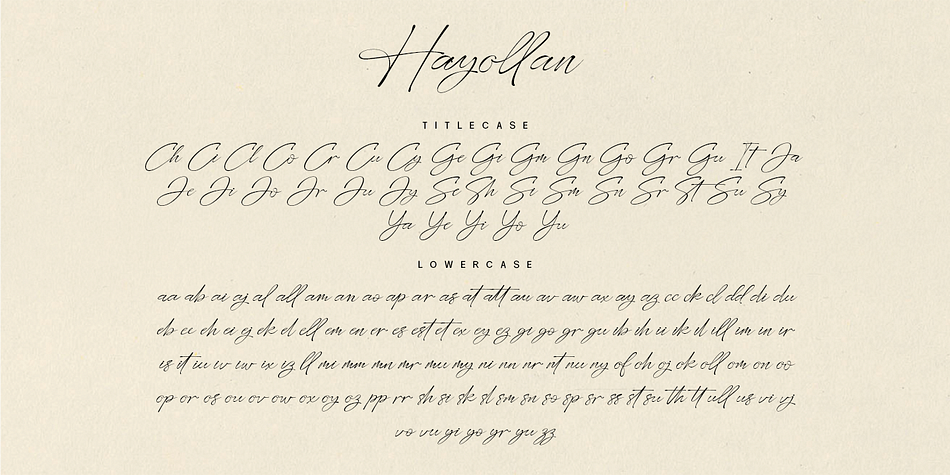 Hayollan
TITLECASE
Ch Ci Cl Co Cr Cu Cy Ge Gi Gm Gn Go Gr Gu It Ja
Je Ji Jo Jr Ju Jy Se Sh Si Sm Sn Sr St Su Sy
Ya Ye Yi Yo Yu
LOWERCASE
aa ab ai aj al all am an ao ap ar as at att au av aw ax ay az cc ck cl dd di du
eb ec eh ei ej ek el ell em en er es est et ex ey ez gi go gr gu ib ih ii ik il ill im in ir
is it iu iv iw ix iz ll mi mm mn mr mu my ni nn nr nt nu ny of oh oj ok oll om on oo
op or os ou ov ow ox oy oz pp rr sh si sk sl sm sn so sp sr ss st su th tt ull us vi vj
vo vu yi yo yr yu zz